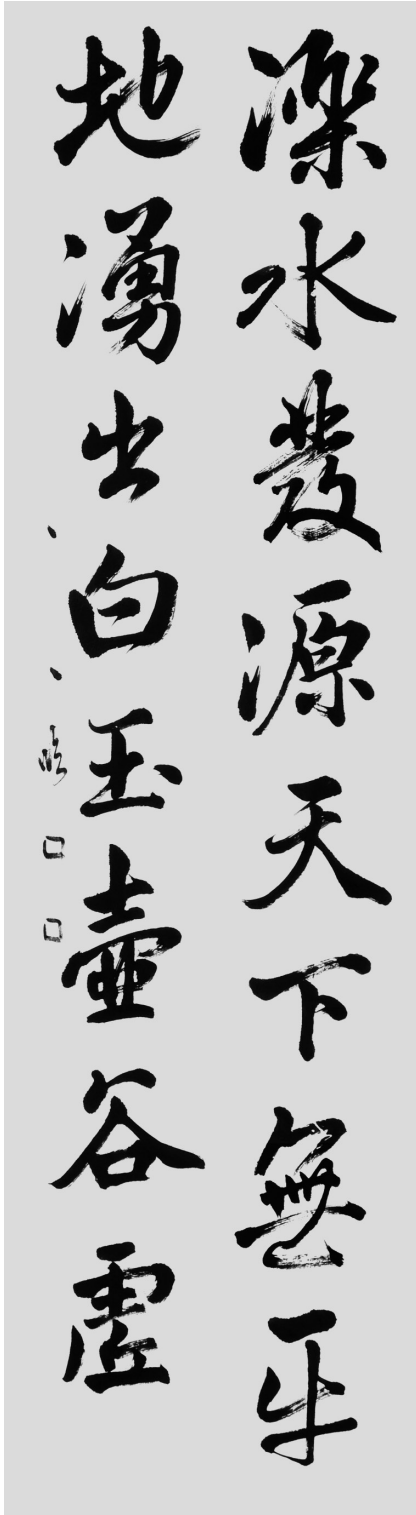 濼水發源天下無平
地湧出白玉壺谷虛